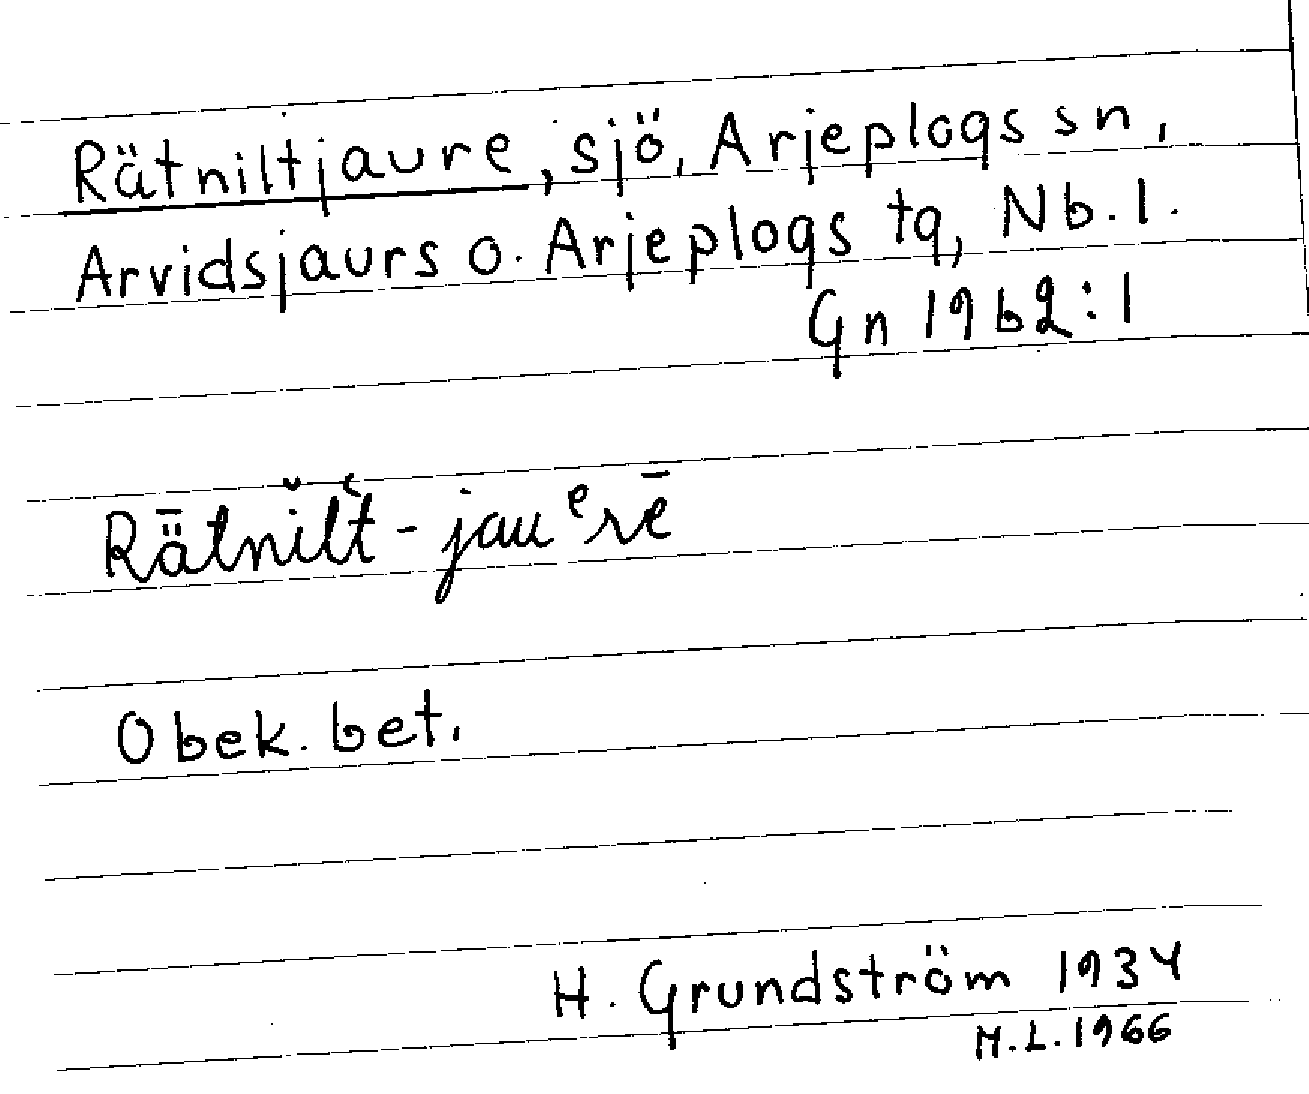 Rätniltjaure, sjö, Arjeplogs sn,
Arvidsjaurs o. Arjeplogs tg, Nb. l.
Gn 1962:1
Rǟtnĭlt́-jauᵉrē
Obek. bet.
H. Grundström 1934
M.L. 1966